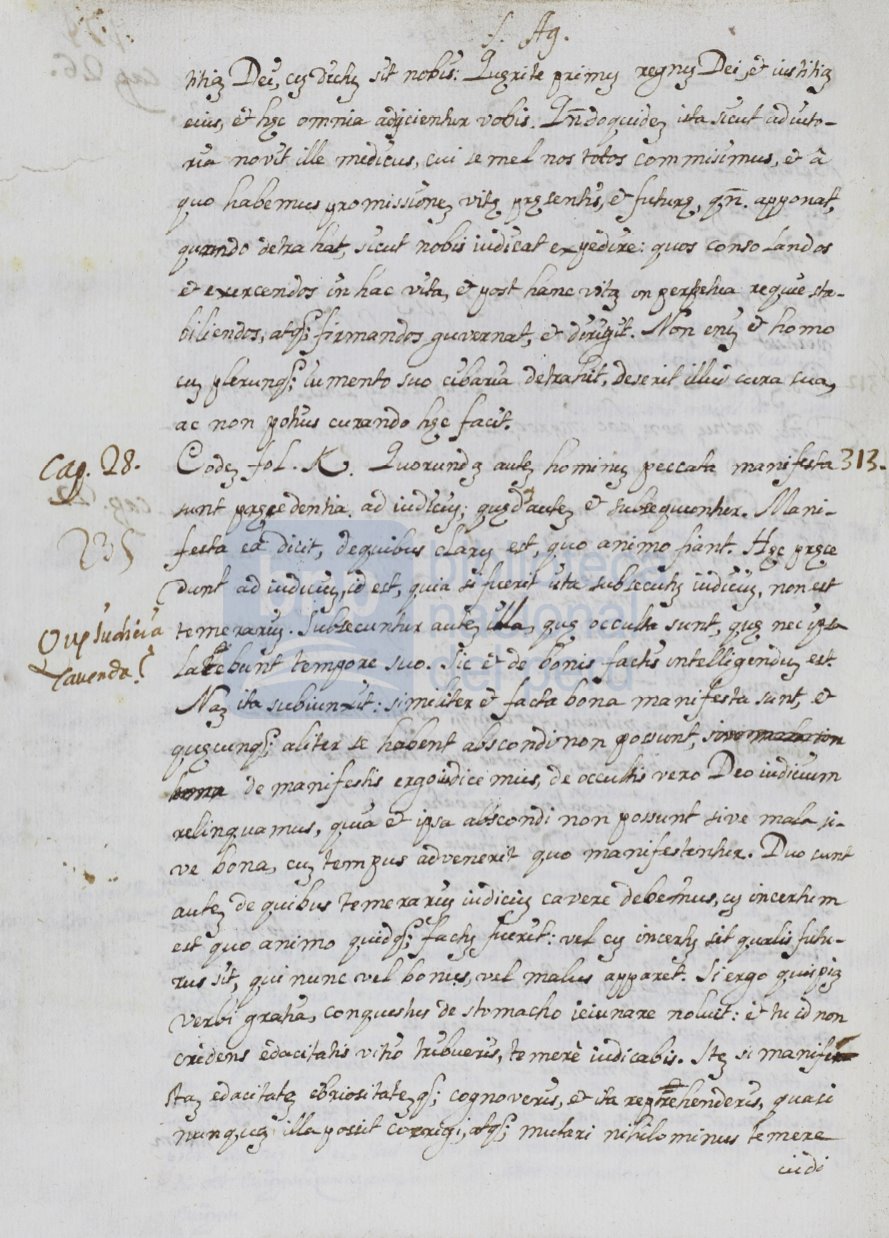 S. Ag.
titię Dei, cų dictų sit nobis: Quęrite primų regnų Dei, et iustitią
eius, et hęc omnia adjicientur vobis. Qñdoquideʒ ista sicut adiuto-
ria novit ille medicus, cui semel nos totos commisimus, et à
quo habemus promissioneʒ vitę pręsentis, et futurę, qñ. apponat,
quando detrahat, sicut nobis iudicat expedire: quos consolandos
et exercendos in hac vita, et post hanc vitą in perpetua requie sta-
biliendos, atq; firmandos guvernat, et dirigit. Non enį et homo
cų plerunq; iumento suo cibaria detrahit, deserit illud cura sua,
ac non potius curando hęc facit.
Cap. 28.
Codeʒ fol. K. Quorundą auteʒ hominų peccata manifesta
313.
sunt pręcedentia ad iudicių; quęd auteʒ et subsequentur. Mani-
festa ea dicit, de quibus clarų est, quo animo fiant. Hęc pręce
235
dunt ad iudicių, id est, quia si fuerit ista subsecutų iudicių, non est
temerarių. Subsecuntur auteʒ illa, quę occulta sunt, quę nec ipsa
Duplicia
cavenda.
latebunt tempore suo. Sic et de bonis factis intelligendų est.
Ną ita subiunxit: similiter et facta bona manifesta sunt, et
quęcunq; aliter se habent abscondi non possunt, sive mala sive
bona de manifestis ergo iudicemus, de occultis vero Deo iudicium
relinquamus, quia et ipsa abscondi non possunt sive mala si-
ve bona, cų tempus advenerit quo manifestentur. Duo sunt
auteʒ de quibus temerarių iudicių cavere debemus, cų incertum
est quo animo quidq; factų fuerit: vel cų incertų sit qualis futu-
rus sit, qui nunc vel bonus, vel malus apparet. Si ergo quispią
verbi gratia, conquestus de stomacho ieiunare noluit: et tu id non
credens edacitatis vitio tribueris, temerè iudicabis. Iteʒ si manife
stą edacitateʒ ebriositateʒq; cognoveris, et ita reprehenderis, quasi
nunquą illa possit corrigi, atq; mutari nihilominus temere
iudi